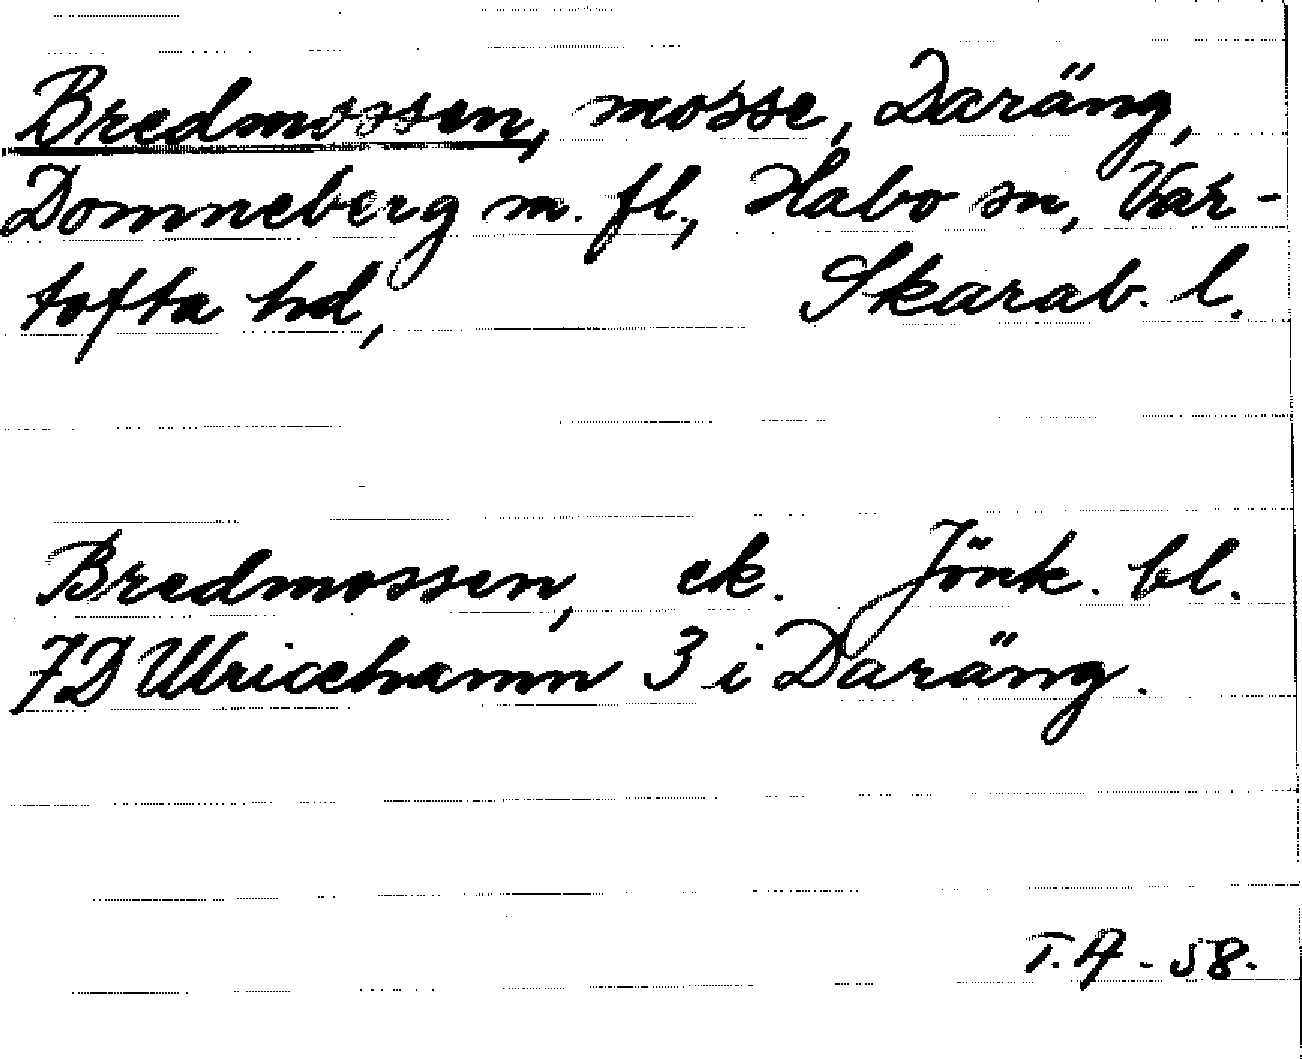 Bredmossen, mosse, Daräng,
Domneberg m. fl., Habo sn, Var-
tofta hd, Skarab. l.
Bredmossen, ek. Jönk. bl.
7D Ulricehamn 3 i Daräng.
T. A - 58.